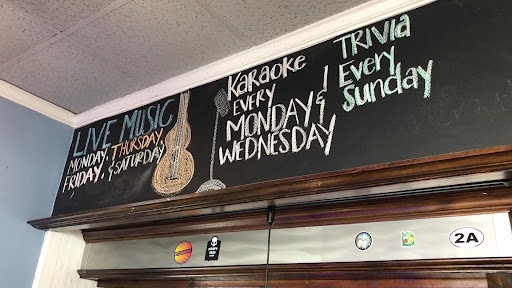 LIVE MUSIC
MONDAY, THURSDAY,
FRIDAY, & SATURDAY
KARAOKE
EVERY
MONDAY &
WEDNESDAY
TRIVIA
Every
Sunday
2A